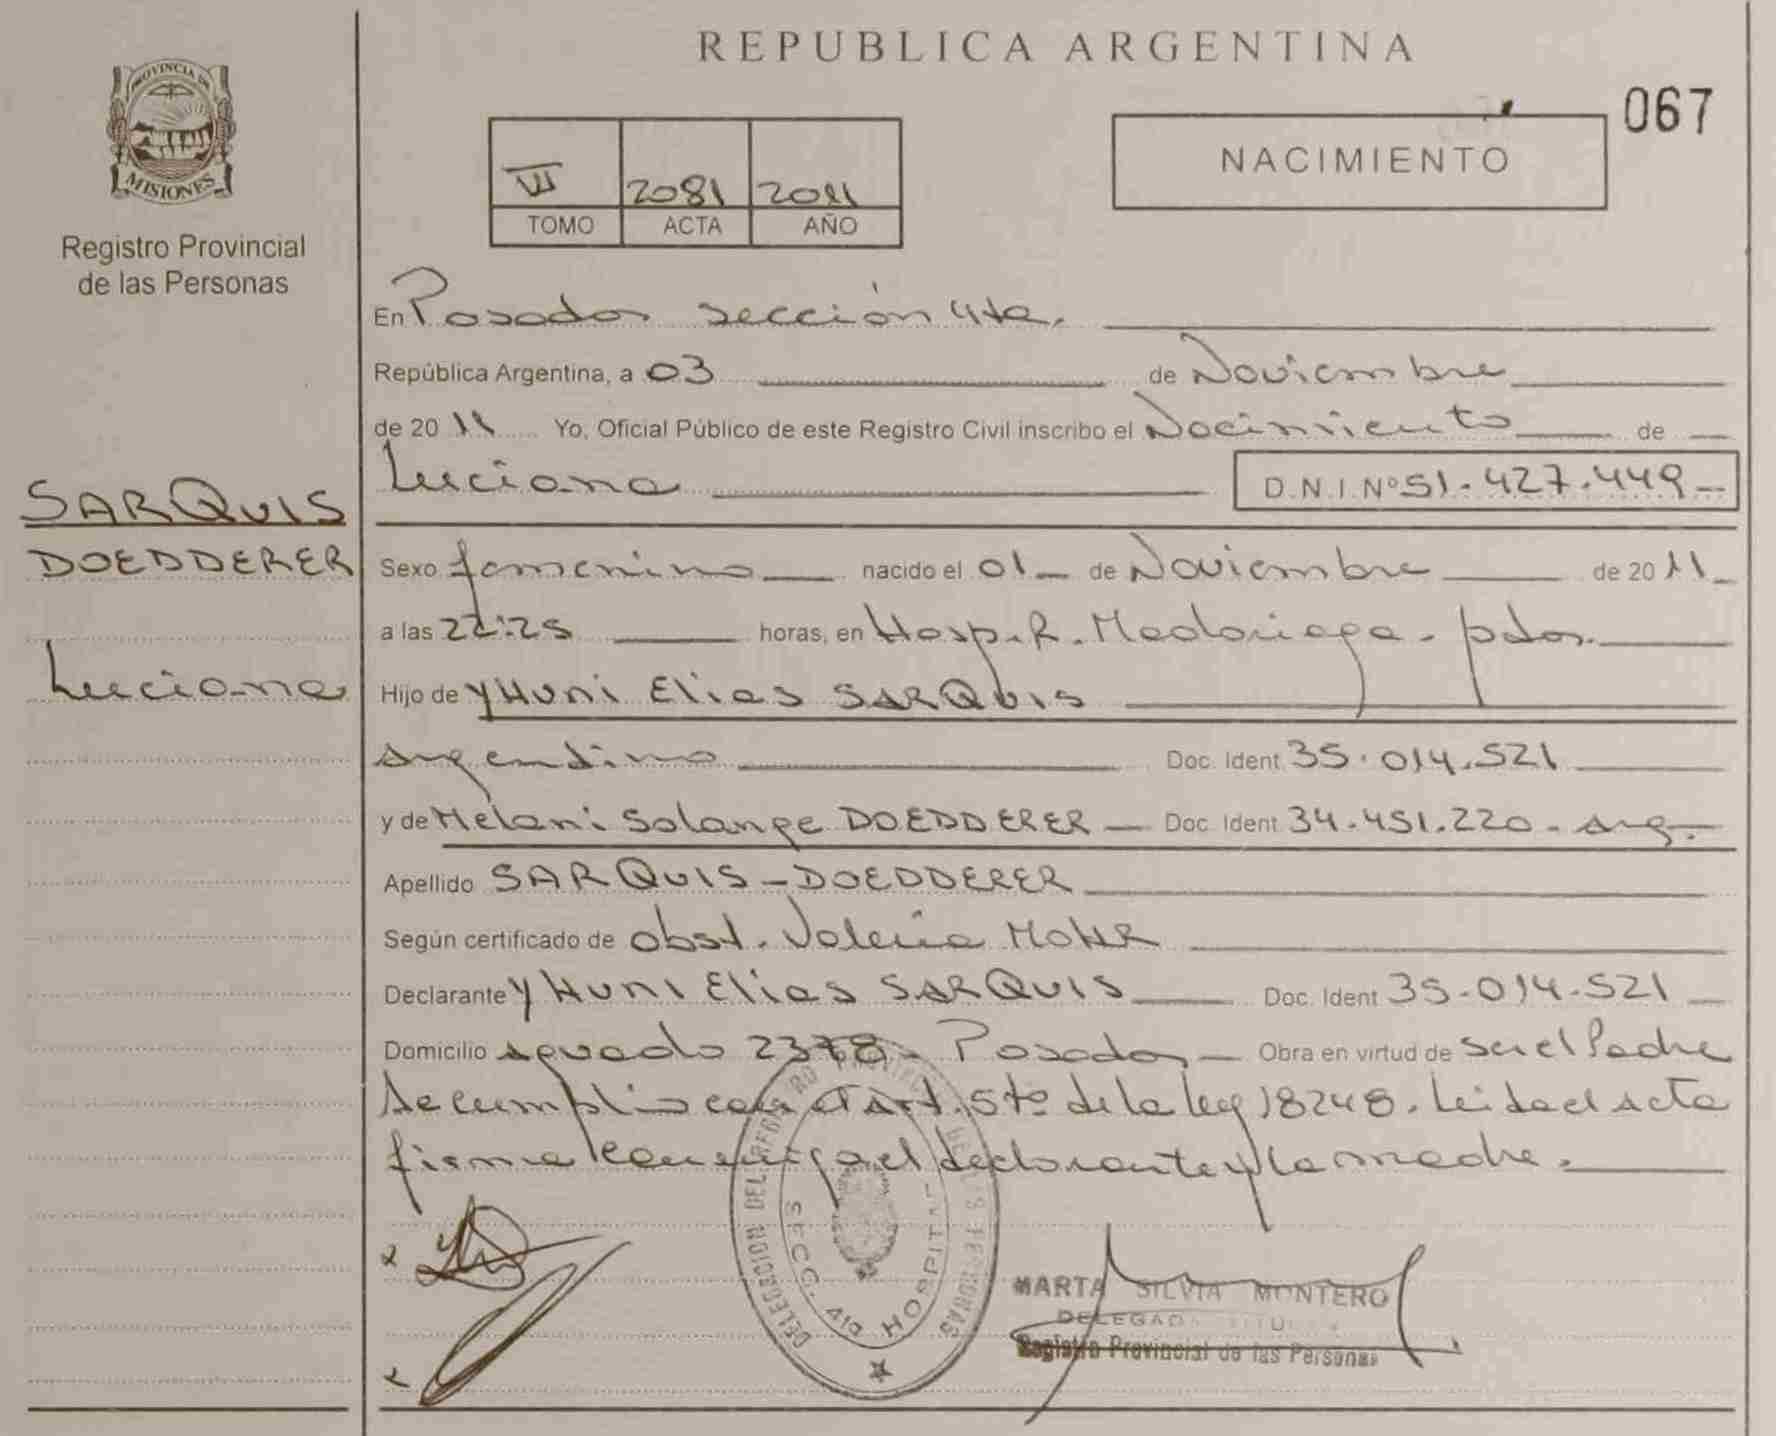 REPUBLICA ARGENTINA
067
PROVINCIA DE
MISIONES
Registro Provincial
de las Personas
VII 2081 2011
TOMO ACTA AÑO
NACIMIENTO
En Posadas sección 4ta.
República Argentina, a 03 de Noviembre
de 2011 Yo, Oficial Público de este Registro Civil inscribo el Nacimiento de
Luciana D.N.I.Nº 51.427.449
SARQUIS
DOEDDERER
Luciana
Sexo femenino nacido el 01 de Noviembre de 2011
a las 22:25 horas, en Hosp. R. Madariaga - pdas.
Hijo de YHUNI Elias SARQUIS
argentino Doc. Ident 35.014.521
y de Melani Solange DOEDDERER Doc. Ident 34.451.220 - arg.
Apellido SARQUIS - DOEDDERER
Según certificado de obst. Valeria MOHR
Declarante YHUNI Elias SARQUIS Doc. Ident 35.014.521
Domicilio aguado 2378 - Posadas Obra en virtud de ser el Padre
Se cumplio con el Art. 5to de la ley 18248. Leida el acta
firma conmigo el declarante y la madre.
DELEGACION DEL REGISTRO PROVINCIAL DE LAS PERSONAS
SECC. 4ta HOSPITAL
MARTA SILVIA MONTERO
DELEGADA TITULAR
Registro Provincial de las Personas